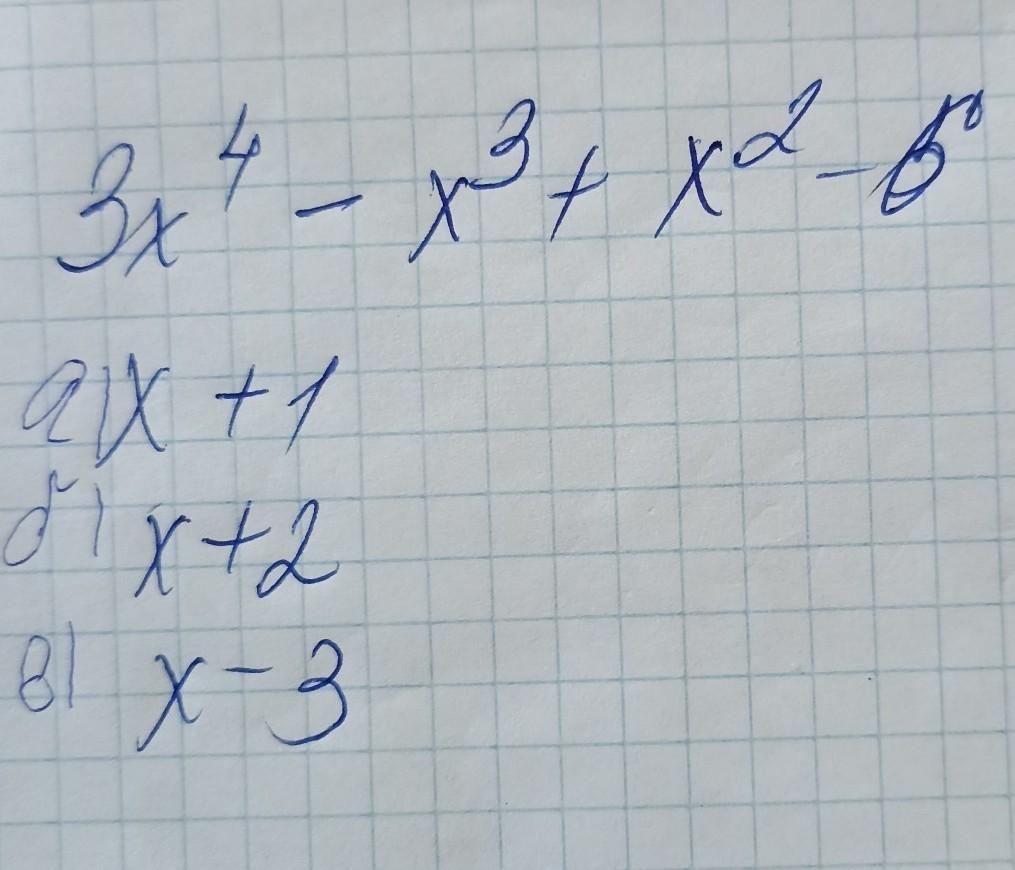 3x⁴ - x³ + x² -
а) x + 1
б) x + 2
в) x - 3